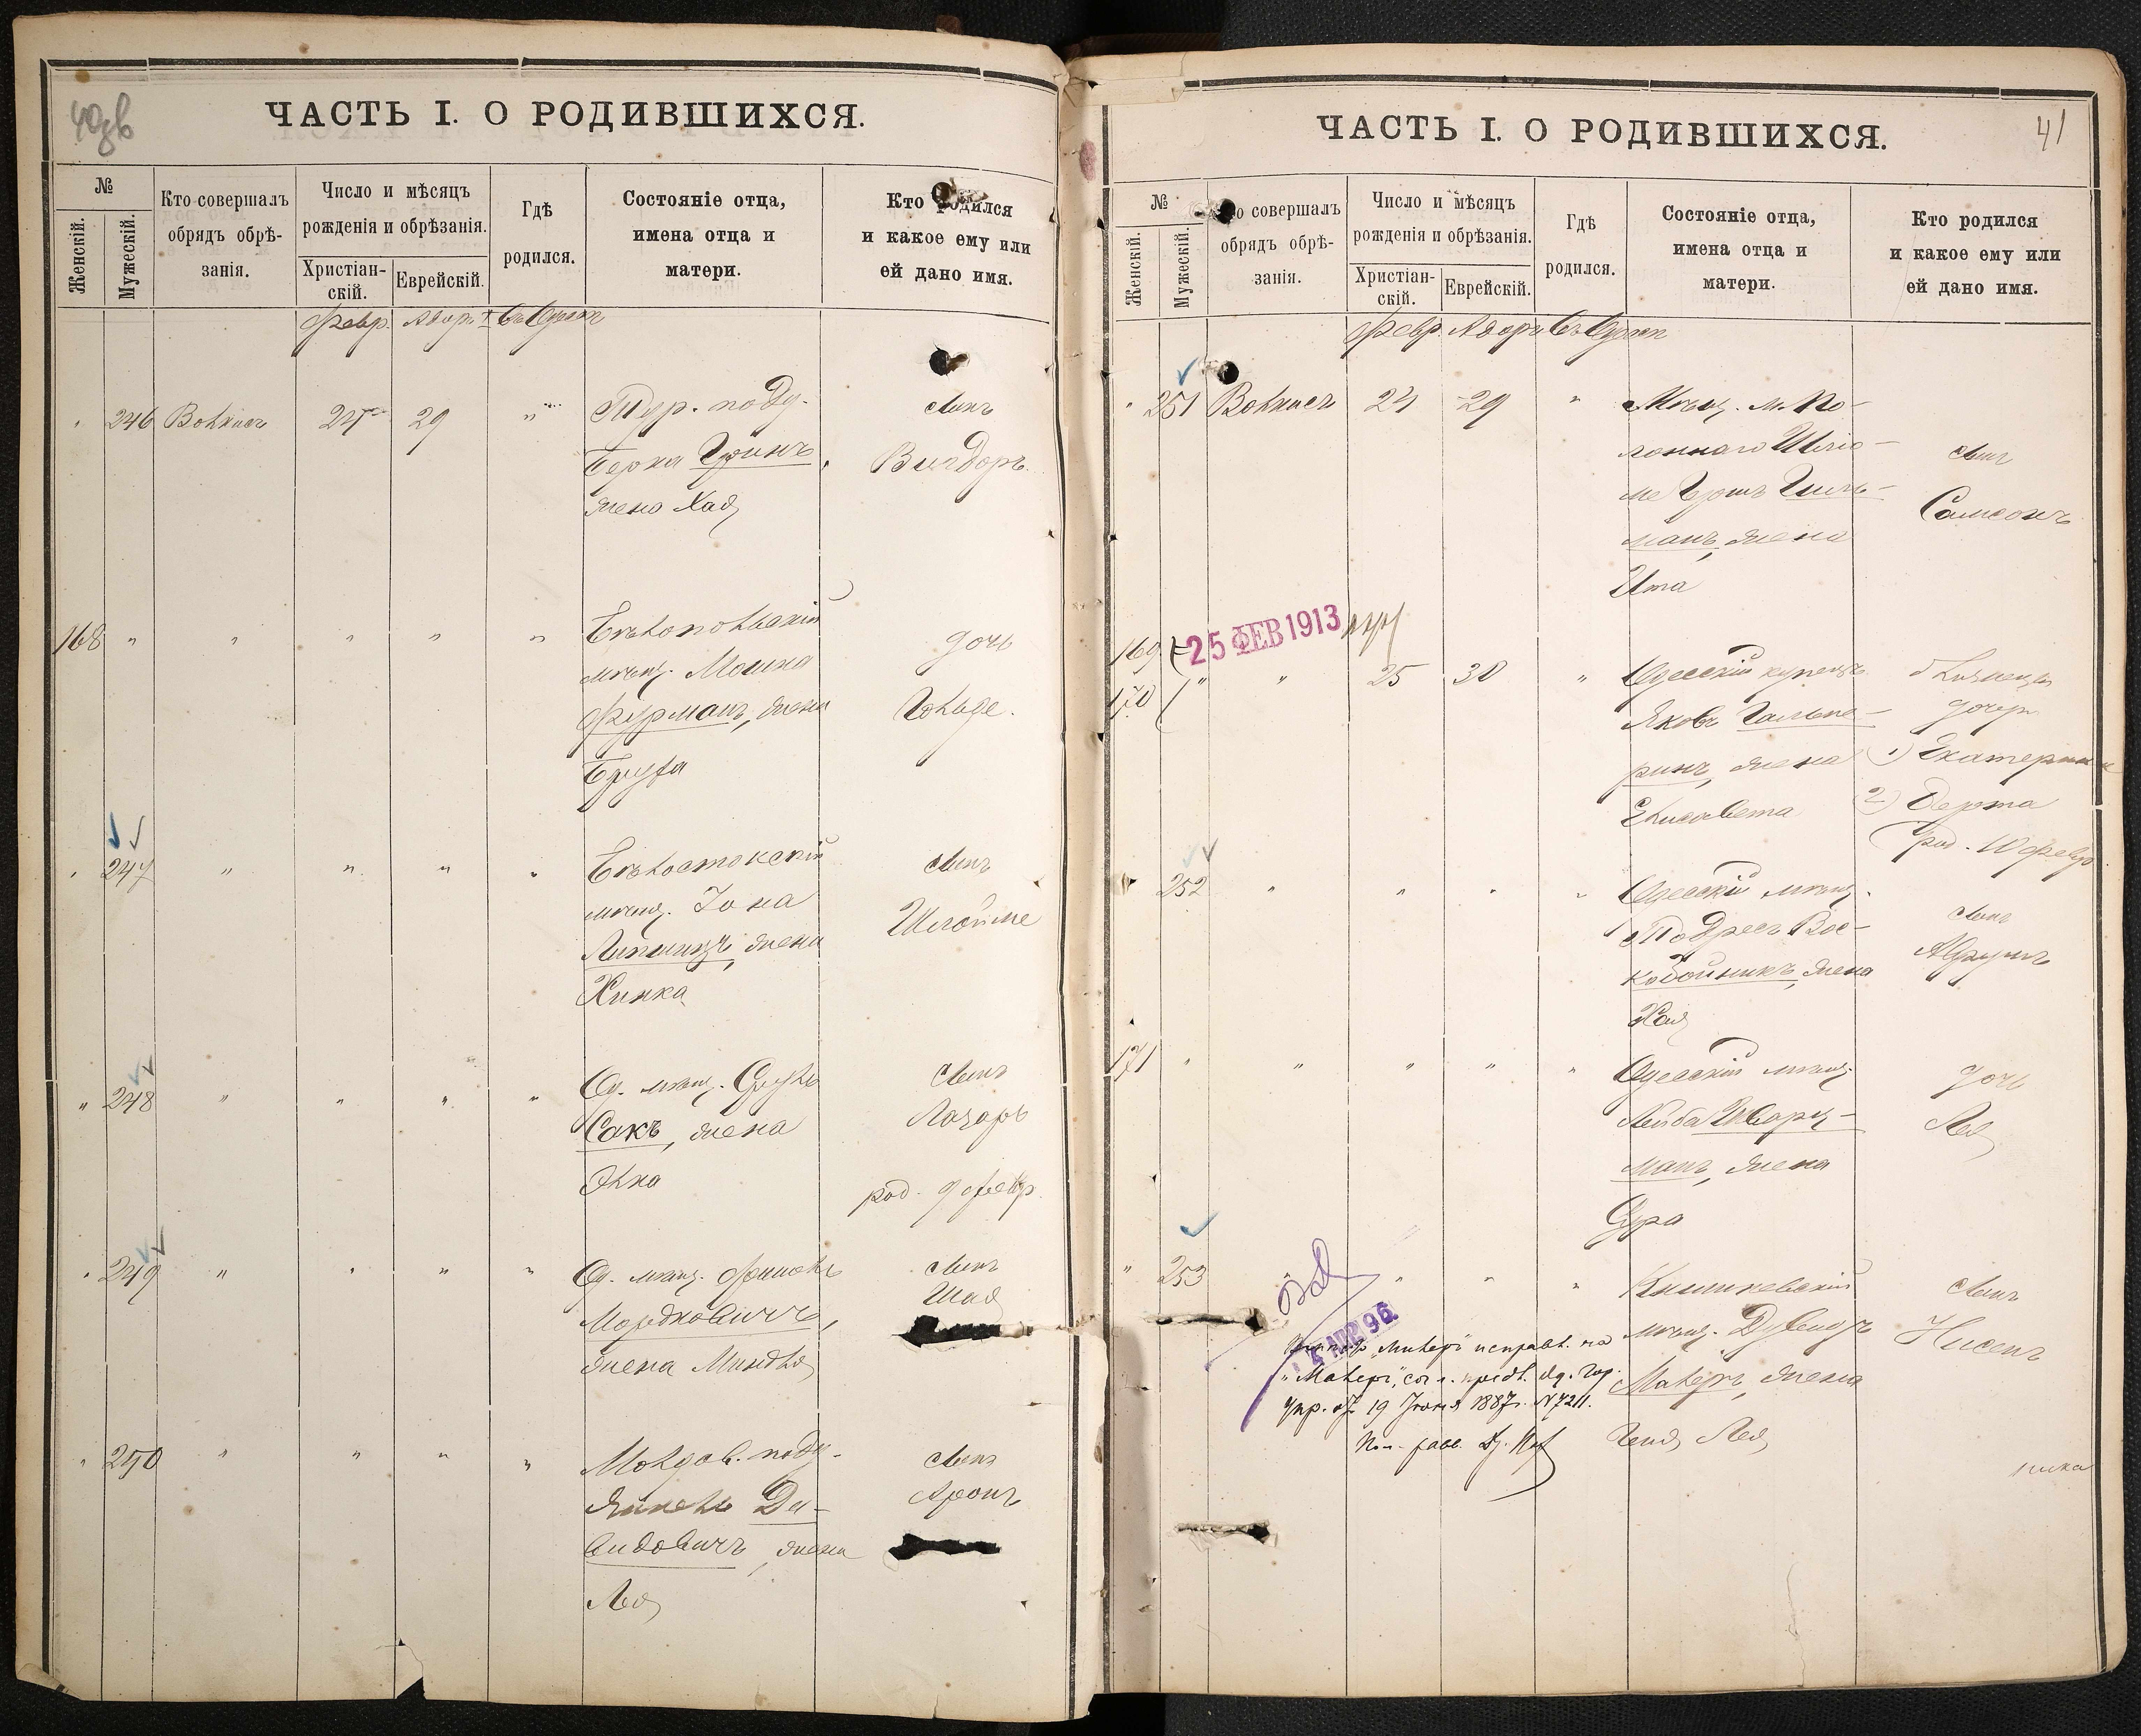 40об
ЧАСТЬ I. О РОДИВШИХСЯ.
№
Женскій.
Мужескій.
Кто совершалъ
обрядъ обрѣ-
занія.
Число и мѣсяцъ
рожденія и обрѣзанія.
Христіан-
скій.
Еврейскій.
Гдѣ
родился.
Состояніе отца,
имена отца и
матери.
Кто родился
и какое ему или
ей дано имя.
Февр. Адаръ
" 246 Волкисъ 24 29 "
Тур. подд.
Берка Гринъ,
жена Хая
сынъ
Вигдоръ
168 " " " " "
Бѣлопольскій
мѣщ. Мошка
Фурманъ, жена
Бруха
дочь
Гольде.
" 247 " " " "
Бѣлостокскій
мѣщ. Іона
Липшицъ, жена
Хинка
сынъ
Шлойме
" 248 " " " "
Од. мѣщ. Сруль
Сакъ, жена
Элка
сынъ
Лазарь
род. 9 февр.
" 249 " " " "
Од. мѣщ. Фишель
Мордковичъ,
жена Миндля
сынъ
Шая
" 250 " " " "
Молдав. подд.
Янкель Да-
видовичъ, жена
Лея
сынъ
Аронъ
41
ЧАСТЬ I. О РОДИВШИХСЯ.
№
Женскій.
Мужескій.
Кто совершалъ
обрядъ обрѣ-
занія.
Число и мѣсяцъ
рожденія и обрѣзанія.
Христіан-
скій.
Еврейскій.
Гдѣ
родился.
Состояніе отца,
имена отца и
матери.
Кто родился
и какое ему или
ей дано имя.
Февр. Адаръ
" 251 Волкисъ 24 29 "
Мѣщ. м. По-
лоннаго Шліо-
ме Гершъ Гиль-
манъ, жена
Ита
сынъ
Самсонъ
25 ФЕВ 1913
169
170 " " 25 30 "
Одесскій купецъ
Яковъ Гальпе-
ринъ, жена
Елисавета
близнецы
дочери
1) Екатерина
2) Берта
род. 10 февр.
" 252 " " " "
Одесскій мѣщ.
Тодресъ Вос-
кобойникъ, жена
Хая
сынъ
Абрумъ
171 " " " " "
Одесскій мѣщ.
Лейба Шварц-
манъ, жена
Сура
дочь
Лея
" 253 " " " "
Кишиневскій
мѣщ. Дувидъ
Малеръ, жена
Геня Лея
сынъ
Нисенъ
АПР 96
"Милеръ" исправл. на
"Малеръ", согл. предл. Од. Гор.
Упр. от 19 Іюня 1887 г. №7211.